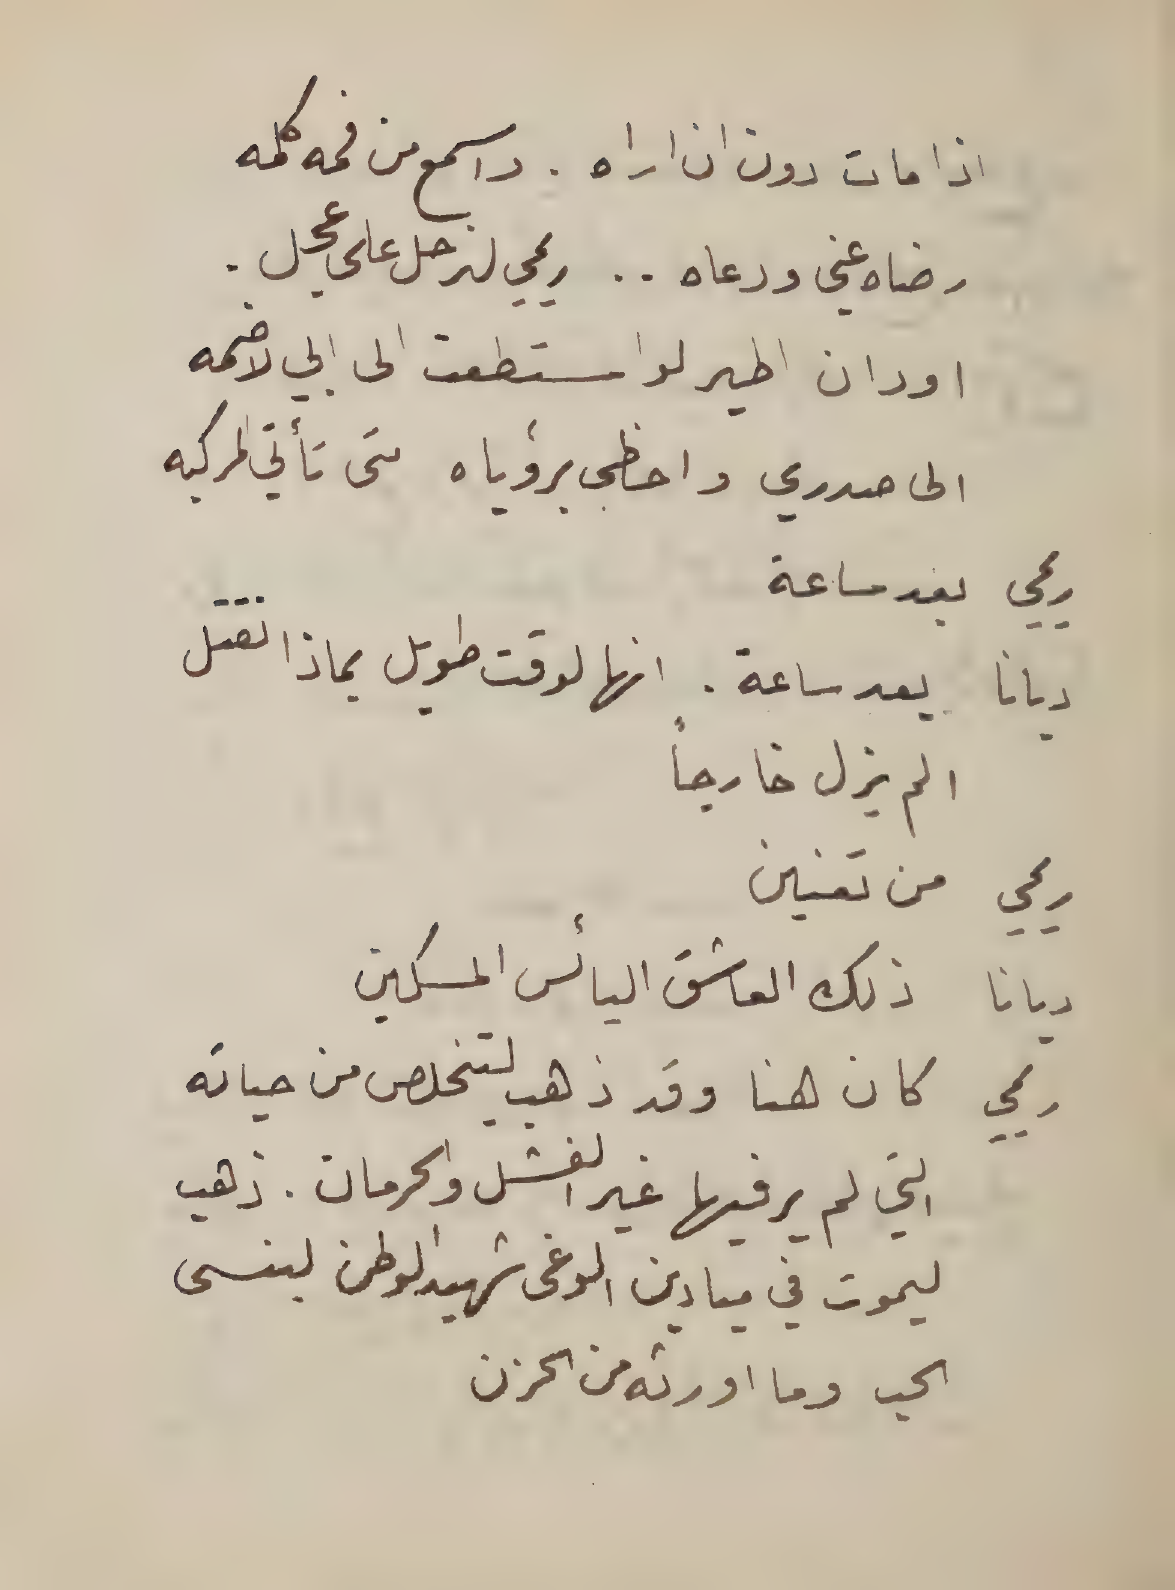 اذا مات دون ان اراه . واسمع من فمه كلمه
رضاه عني ودعاه .. ريمي لنرحل على عجل .
اود ان اطير لو استطعت الى ابي لاضمه
الى صدري واحظى برؤياه متى تأتي المركبه
ريمي بعد ساعة
ديانا بعد ساعة . انها لوقت طويل بماذا نقتل
الم يزل خارجاً
ريمي من تعنين
ديانا ذلك العاشق اليأس المسكين
ريمي كان هنا وقد ذهب ليتخلص من حياته
التي لم ير فيها غير الفشل والحرمان . ذهب
ليموت في ميادين الوغى شهيد الوطن لينسى
الحب وما اورثه من الحزن